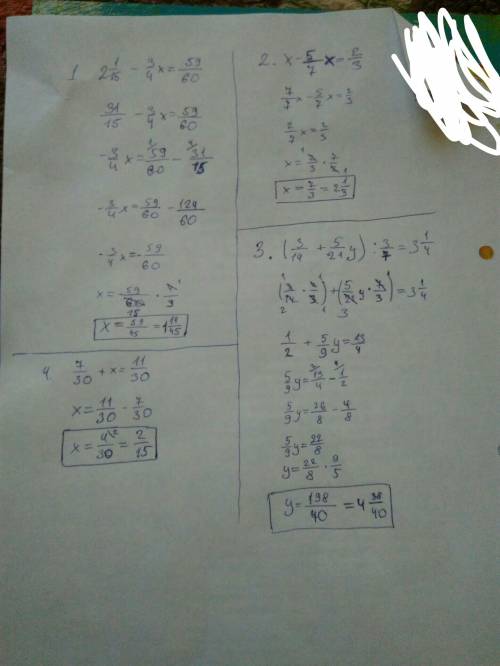 1. 2 1/15 - 3/4 x = 59/60
31/15 - 3/4 x = 59/60
-3/4 x = 59/60 - 31/15
-3/4 x = 59/60 - 124/60
-3/4 x = -59/60
x = 59/60 · 4/3
x = 59/45 = 1 14/45
2. x - 5/7 x = 2/3
7/7 x - 5/7 x = 2/3
2/7 x = 2/3
x = 2/3 · 7/2
x = 7/3 = 2 1/3
3. (3/14 + 5/21 y) : 3/7 = 3 1/4
(3/14 · 7/3) + (5/21 y · 7/3) = 3 1/4
1/2 + 5/9 y = 13/4
5/9 y = 13/4 - 1/2
5/9 y = 26/8 - 4/8
5/9 y = 22/8
y = 22/8 · 9/5
y = 198/40 = 4 38/40
4. 7/30 + x = 11/30
x = 11/30 - 7/30
x = 4/30 = 2/15